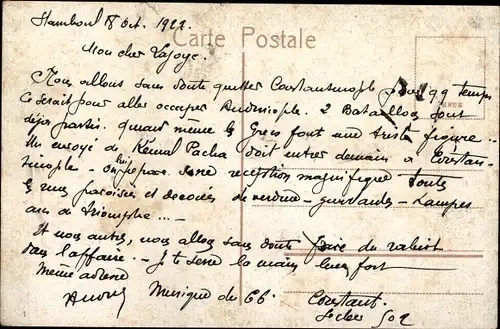 Stamboul 18 Oct. 1922.
Carte Postale
Mon cher Lajoye.
Nous allons sans doute quitter Constantinople pour qq temps
Ce serait pour aller occuper Andrinople. 2 Bataillons sont
déjà partis. Quand même les Grecs font une triste figure..
Un envoyé de Kémal Pacha doit entrer demain à Constan-
tinople - on lui prépare une réception magnifique toutes
les rues pavoisées et décorées de verdure - guirlandes - Lampes
arcs de triomphe...-
Et nous autres, nous allons sans doute faire du rabiot
dans l'affaire. - Je te serre la main bien fort
Même adresse
Musique du 66
Constant.
Secteur 502